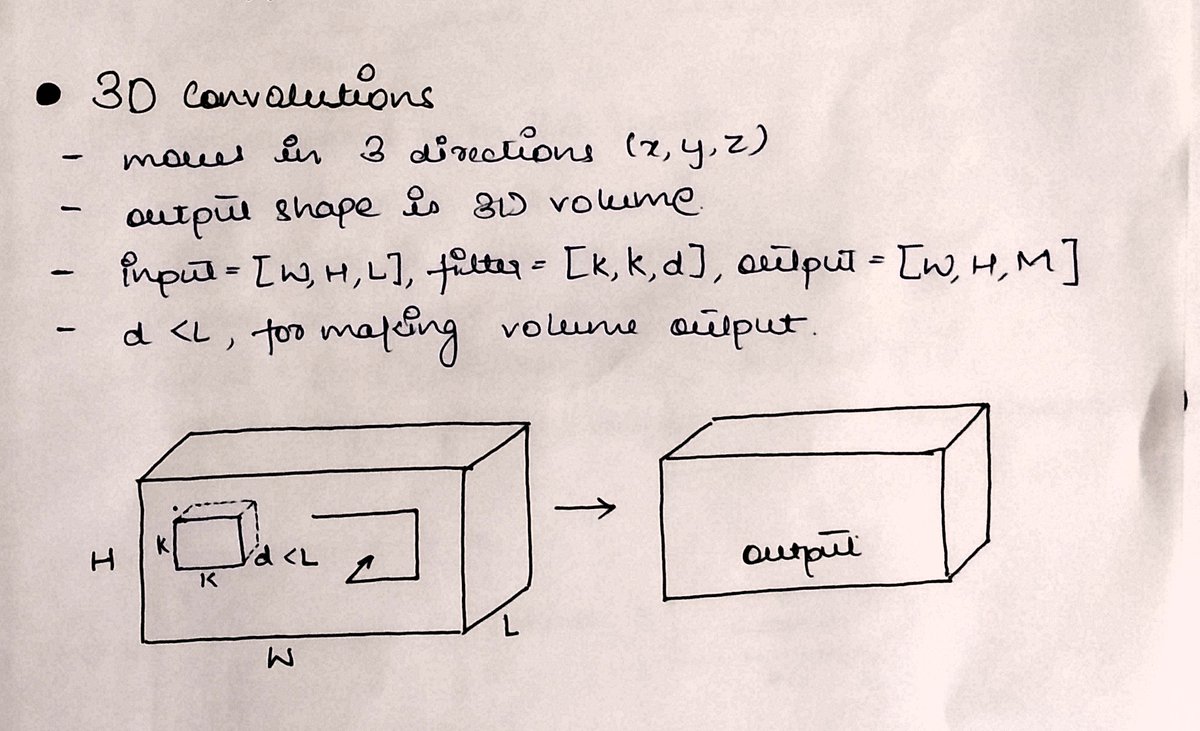 • 3D convolutions
- moves in 3 directions (x, y, z)
- output shape is 3D volume.
- input = [W, H, L], filter = [k, k, d], output = [W, H, M]
- d < L, for making volume output.
H
K
K
d < L
W
L
output